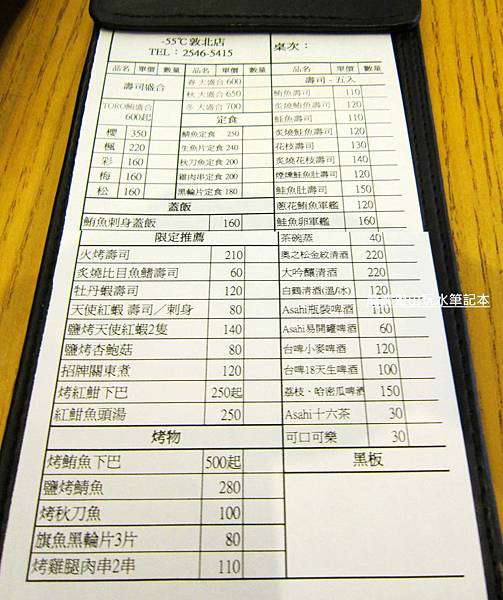 -55℃敦北店
TEL：2546-5415
桌次：
品名 單價 數量 品名 單價 數量 品名 單價 數量
壽司盛合
春 大盛合 600
秋 大盛合 650
冬 大盛合 700
TORO鮪盛合
600起
櫻 350
楓 220
彩 160
梅 160
松 160
定食
鯖魚定食 250
生魚片定食 240
秋刀魚定食 200
雞肉串定食 200
黑輪片定食 180
蓋飯
鮪魚刺身蓋飯 160
限定推薦
火烤壽司 210
炙燒比目魚鰭壽司 60
牡丹蝦壽司 120
天使紅蝦 壽司／刺身 80
鹽烤天使紅蝦2隻 140
鹽烤杏鮑菇 80
招牌關東煮 120
烤紅魽下巴 250起
紅魽魚頭湯 250
烤物
烤鮪魚下巴 500起
鹽烤鯖魚 280
烤秋刀魚 100
旗魚黑輪片3片 80
烤雞腿肉串2串 110
壽司 - 五入
鮪魚壽司 110
炙燒鮪魚壽司 120
鮭魚壽司 110
炙燒鮭魚壽司 120
花枝壽司 130
炙燒花枝壽司 140
煙燻鮭魚肚壽司 120
鮭魚肚壽司 150
蔥花鮪魚軍艦 120
鮭魚卵軍艦 160
茶碗蒸 40
奧之松金紋清酒 220
大吟釀清酒 220
白鶴清酒(溫/冰) 120
Asahi瓶裝啤酒 110
Asahi易開罐啤酒 60
台啤小麥啤酒 120
台啤18天生啤酒 100
荔枝、哈密瓜啤酒 150
Asahi十六茶 30
可口可樂 30
黑板
玩水筆記本